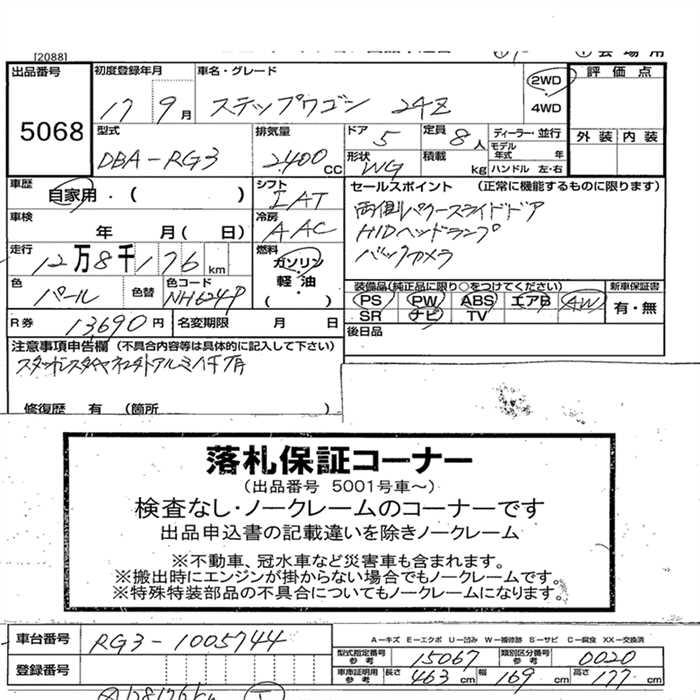 [2088]
出品番号 初度登録年月 車名・グレード 2WD 評価点
5068 17 9月 ステップワゴン 24Z 4WD 外装 内装
型式 排気量 ドア 5 定員 8人 ディーラー・並行
DBA-RG3 2400CC 形状 WG 積載 kg モデル年式 年
ハンドル 左・右
車歴 自家用・( ) シフト IAT セールスポイント (正常に機能するものに限ります)
車検 年 月( 日) 冷房 AAC 両側パワースライドドア
HIDヘッドランプ
走行 12万8千176km 燃料 ガソリン・軽油・( ) バックカメラ
色 パール 色替 色コード NH624P 装備品(純正品に限り○をつけてください) 新車保証書
PS PW ABS エアB AW 有・無
SR ナビ TV
R券 13,690円 名変期限 月 日 後日品
注意事項申告欄 (不具合内容等は具体的に記入して下さい)
修復歴 有 (箇所 )
落札保証コーナー
(出品番号 5001号車〜)
検査なし・ノークレームのコーナーです
出品申込書の記載違いを除きノークレーム
※不動車、冠水車など災害車も含まれます。
※搬出時にエンジンが掛からない場合でもノークレームです。
※特殊特装部品の不具合についてもノークレームになります。
車台番号 RG3-1005744 A-キズ E-エクボ U-凹み W-補修跡 S-サビ C-腐食 XX-交換済
型式指定番号参考 15067 類別区分番号参考 0020
登録番号 車庫証明用参考 長さ 463cm 幅 169cm 高さ 177cm